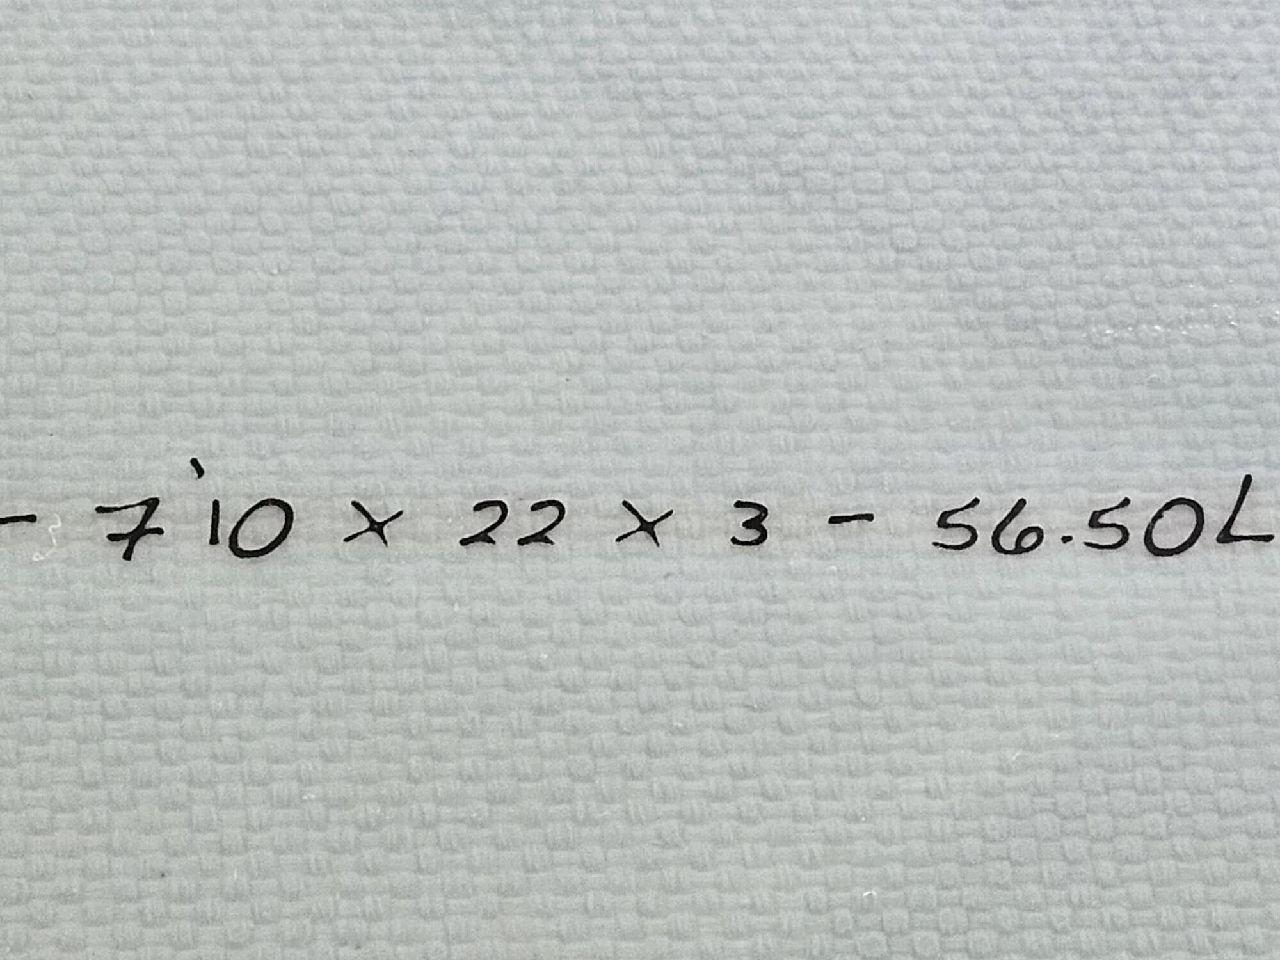 - 7'10 x 22 x 3 - 56.50L